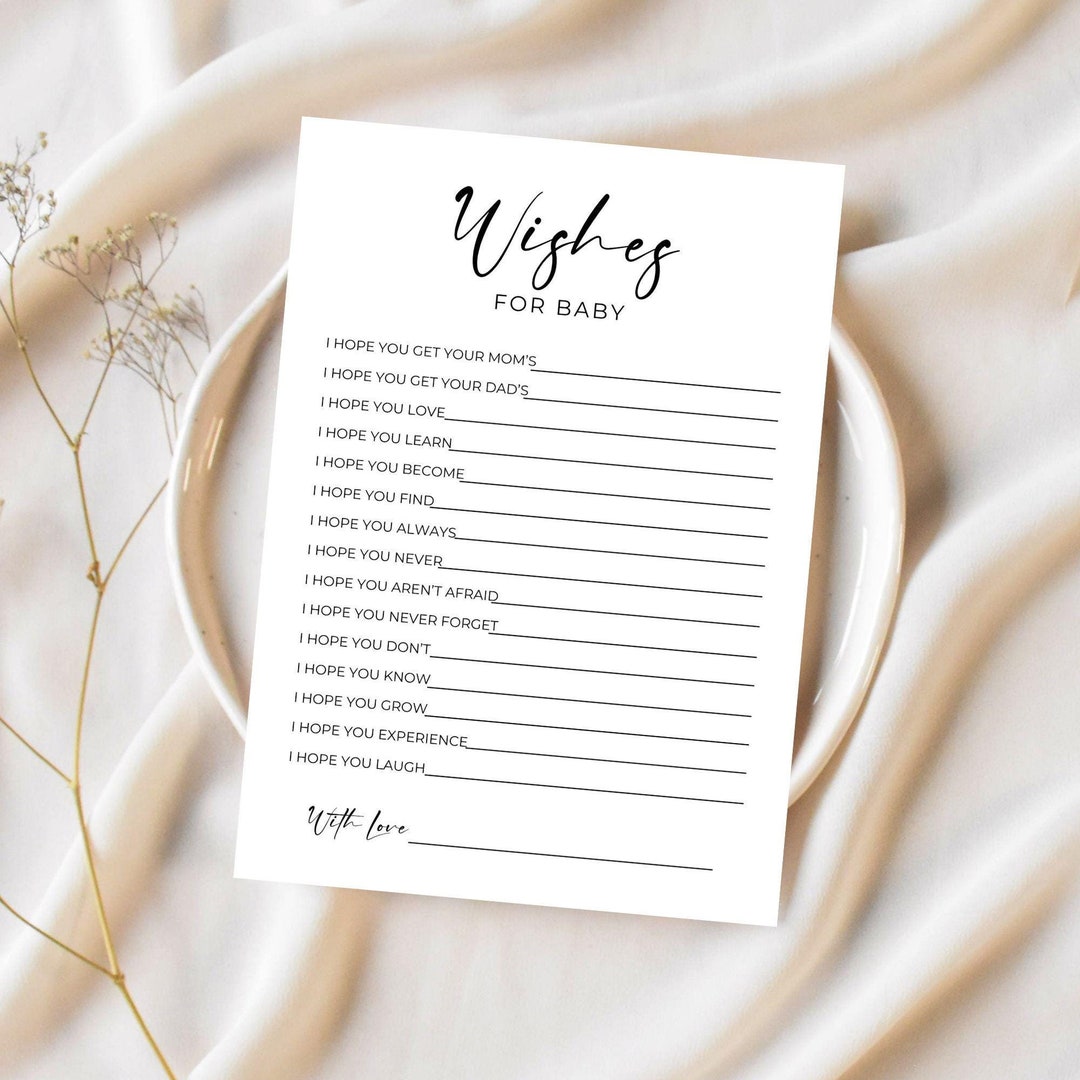 Wishes
FOR BABY
I HOPE YOU GET YOUR MOM'S
I HOPE YOU GET YOUR DAD'S
I HOPE YOU LOVE
I HOPE YOU LEARN
I HOPE YOU BECOME
I HOPE YOU FIND
I HOPE YOU ALWAYS
I HOPE YOU NEVER
I HOPE YOU AREN'T AFRAID
I HOPE YOU NEVER FORGET
I HOPE YOU DON'T
I HOPE YOU KNOW
I HOPE YOU GROW
I HOPE YOU EXPERIENCE
I HOPE YOU LAUGH
With Love